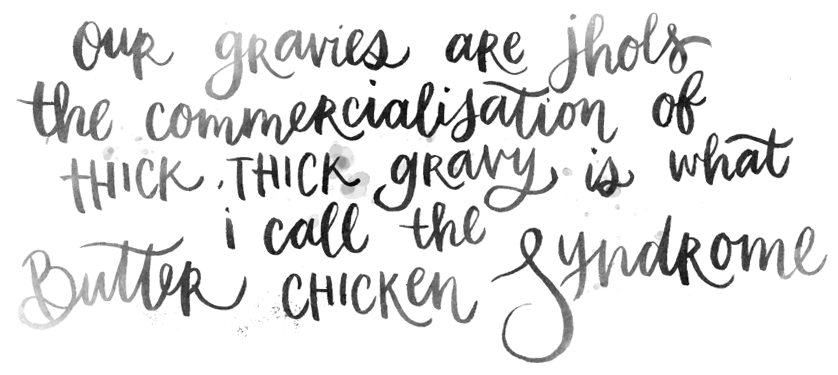 our gravies are jhols
the commercialisation of
thick, THICK gravy is what
i call the
Butter CHICKen Syndrome